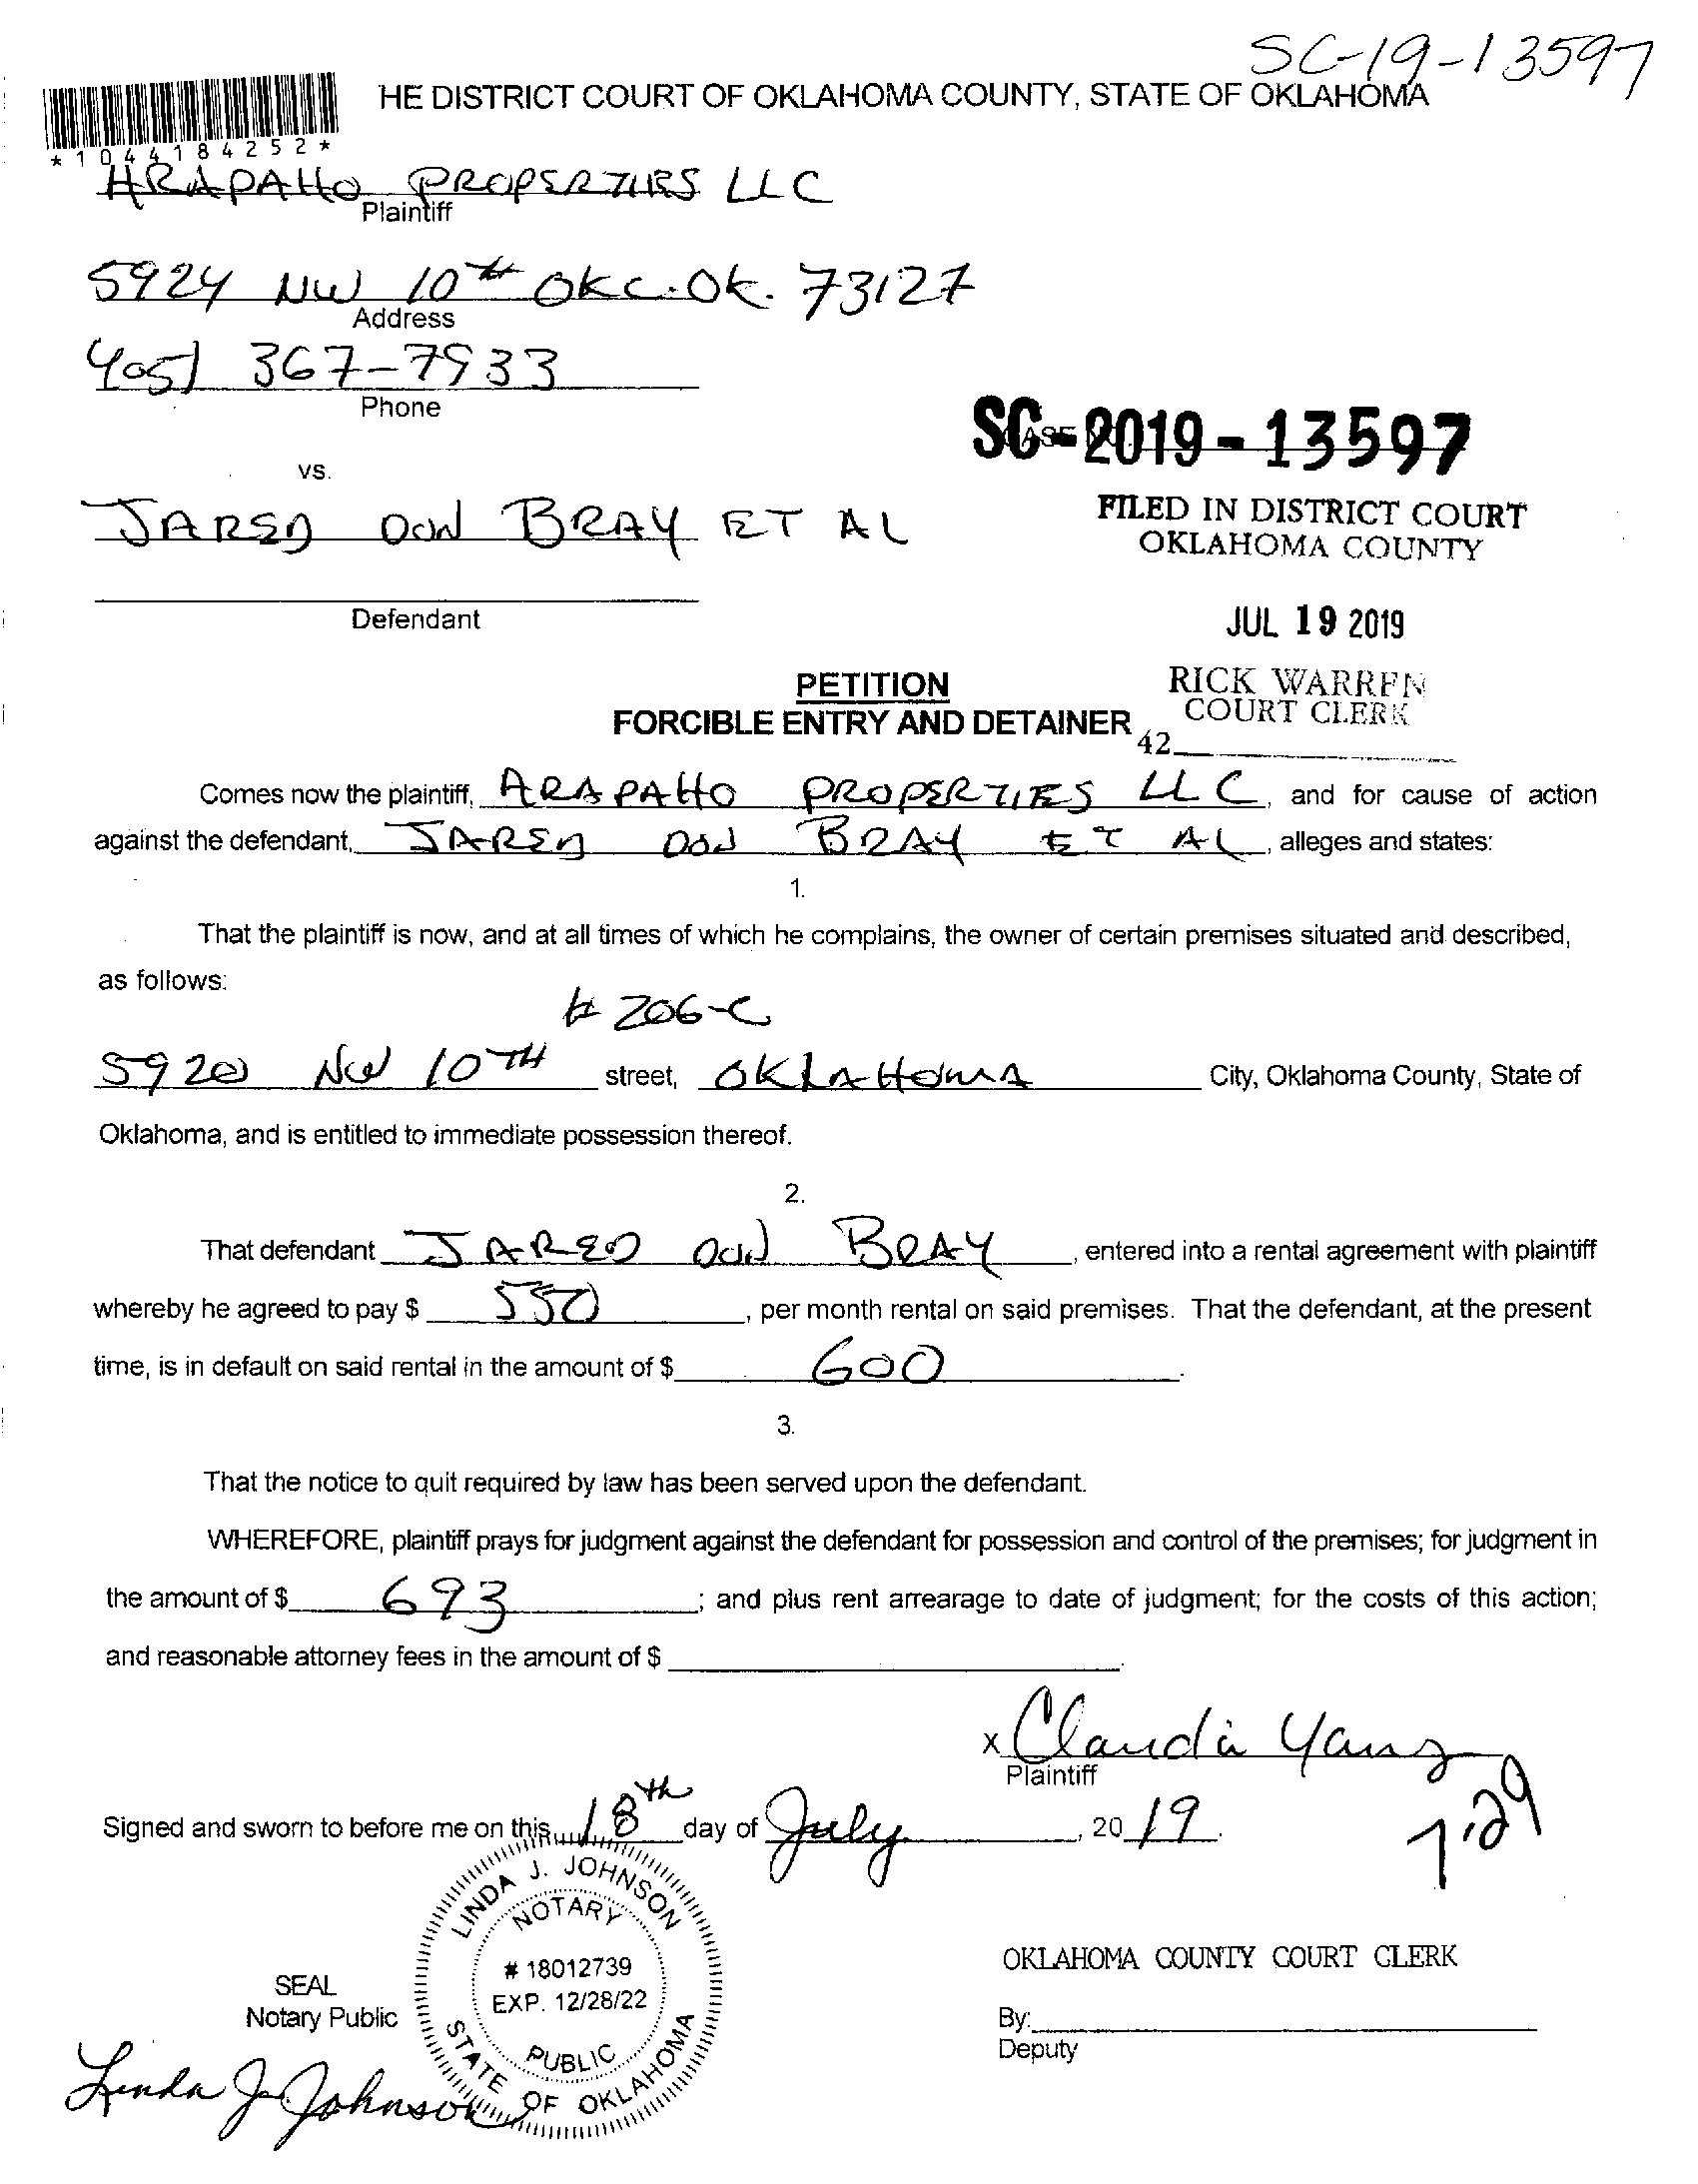 SC-19-13597
HE DISTRICT COURT OF OKLAHOMA COUNTY, STATE OF OKLAHOMA
*1044184252*
ARAPAHO PROPERTIES LLC
Plaintiff
5924 NW 10th OKC. OK. 73127
Address
405) 367-7933
Phone
SC-2019-13597
vs.
JARED DON BRAY ET AL
FILED IN DISTRICT COURT
OKLAHOMA COUNTY
Defendant
JUL 19 2019
PETITION
RICK WARREN
COURT CLERK
FORCIBLE ENTRY AND DETAINER
42
Comes now the plaintiff, ARAPAHO PROPERTIES LLC, and for cause of action
against the defendant, JARED DON BRAY ET AL, alleges and states:
1.
That the plaintiff is now, and at all times of which he complains, the owner of certain premises situated and described,
as follows:
# 206-C
5920 NW 10TH street, OKLAHOMA City, Oklahoma County, State of
Oklahoma, and is entitled to immediate possession thereof.
2.
That defendant JARED DON BRAY, entered into a rental agreement with plaintiff
whereby he agreed to pay $ 550, per month rental on said premises. That the defendant, at the present
time, is in default on said rental in the amount of $ 600.
3.
That the notice to quit required by law has been served upon the defendant.
WHEREFORE, plaintiff prays for judgment against the defendant for possession and control of the premises; for judgment in
the amount of $ 693; and plus rent arrearage to date of judgment; for the costs of this action;
and reasonable attorney fees in the amount of $ .
x Claudia Yang
Plaintiff
7.29
Signed and sworn to before me on this 18th day of July, 2019.
LINDA J. JOHNSON
NOTARY
# 18012739
EXP. 12/28/22
PUBLIC
STATE OF OKLAHOMA
SEAL
Notary Public
Linda J Johnson
OKLAHOMA COUNTY COURT CLERK
By:
Deputy